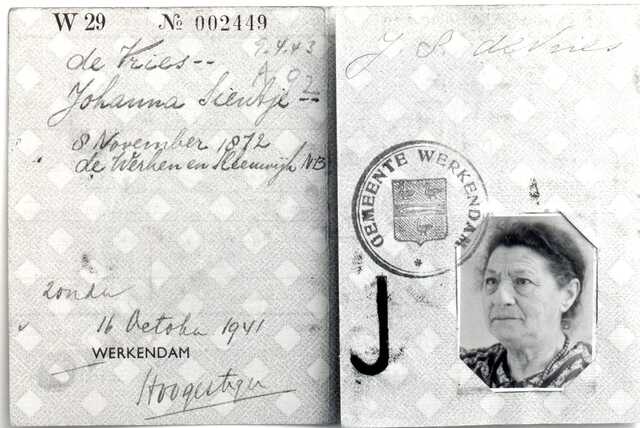 W 29 № 002449
9.4.43
de Vries--
A 92
Johanna Sientje--
8 November 1872
de Werken en Sleeuwijk NB
zonder
16 October 1941
WERKENDAM
J S. de Vries
GEMEENTE WERKENDAM
J